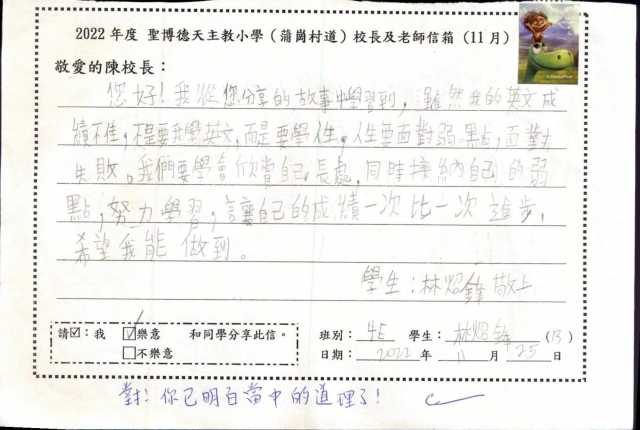 2022 年度 聖博德天主教小學（蒲崗村道）校長及老師信箱（11 月）
敬愛的陳校長：
您好！我從您分享的故事中學習到，雖然我的英文成
績不佳，不是要我學英文，而是要學人生。人生要面對弱點，面對
失敗。我們要學會欣賞自己長處，同時接納自己的弱
點，努力學習，讓自己的成績一次比一次進步，
希望我能做到。
學生：林焯鋒 敬上
請☑：我 ☑樂意 和同學分享此信。
□不樂意
班別： 4E 學生： 林焯鋒 (13)
日期： 2022 年 11 月 25 日
對！你已明白當中的道理了！